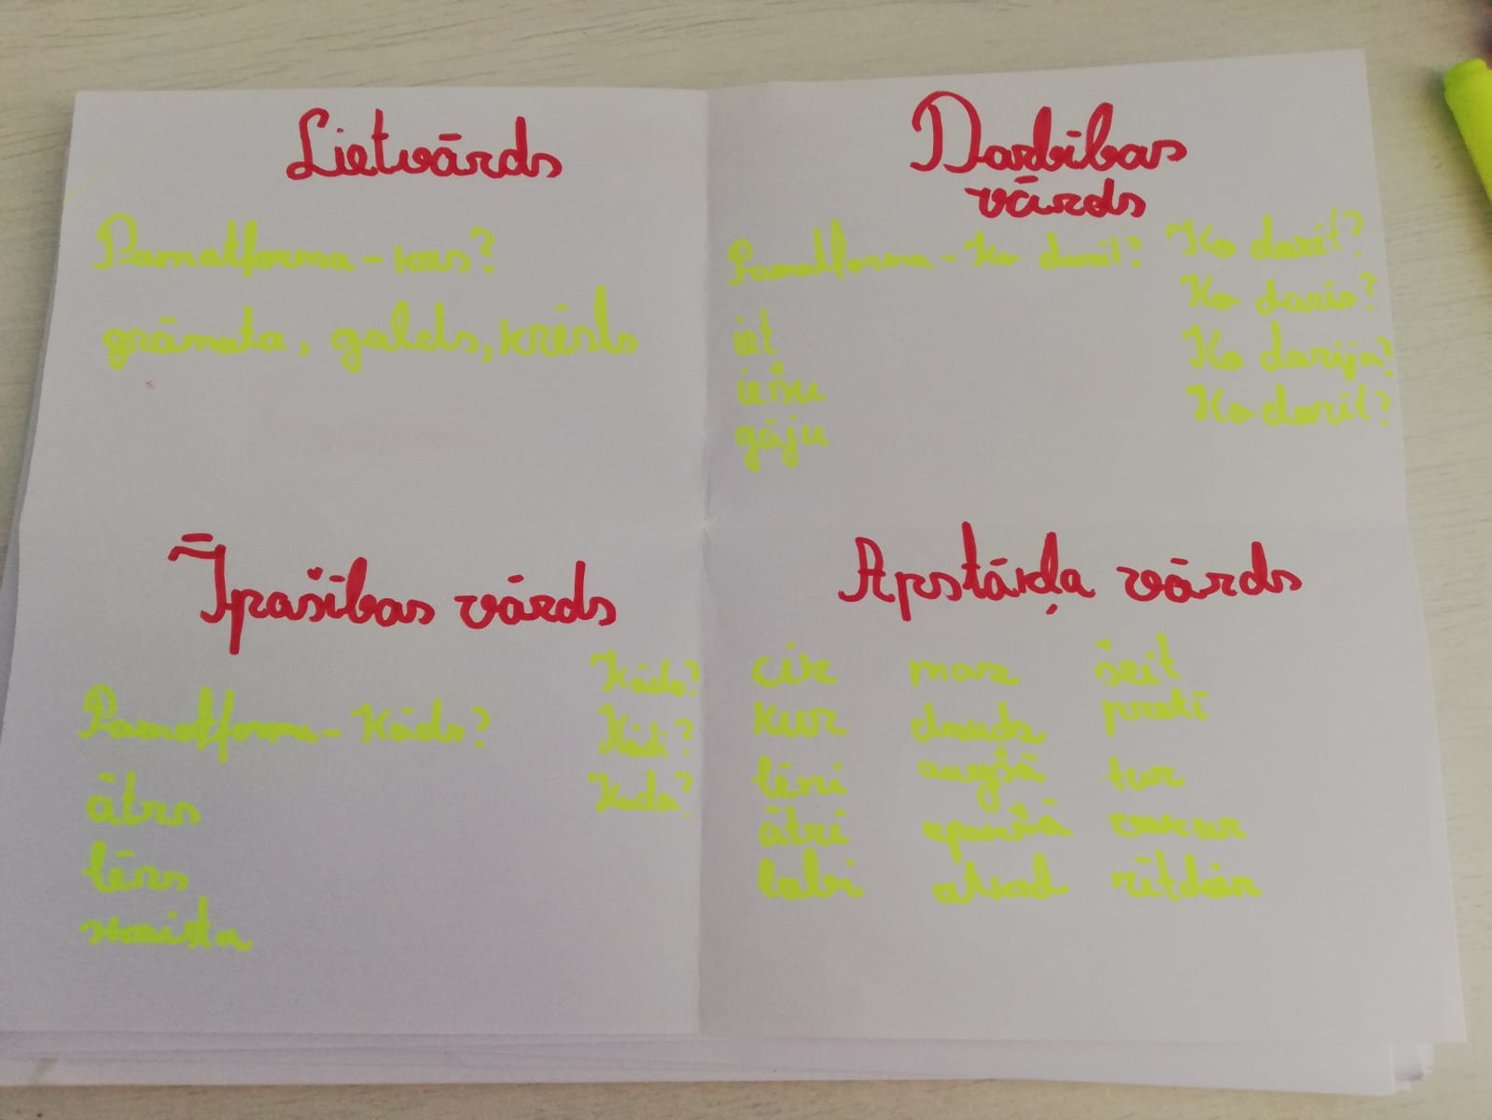 Lietvārds
Pamatforma - kas?
grāmata, galds, krēsls
Darbības
vārds
Pamatforma - Ko darīt?
iet
iešu
gāju
Ko darīt?
Ko darīs?
Ko darīja?
Ko darīt?
Īpašības vārds
Pamatforma - Kāds?
ātrs
lēns
skaista
Kāds?
Kādi?
Kāda?
Apstākļa vārds
cik
kur
lēni
ātri
labi
maz
daudz
augšā
apakšā
atkal
šeit
pretī
tur
vakar
rītdien